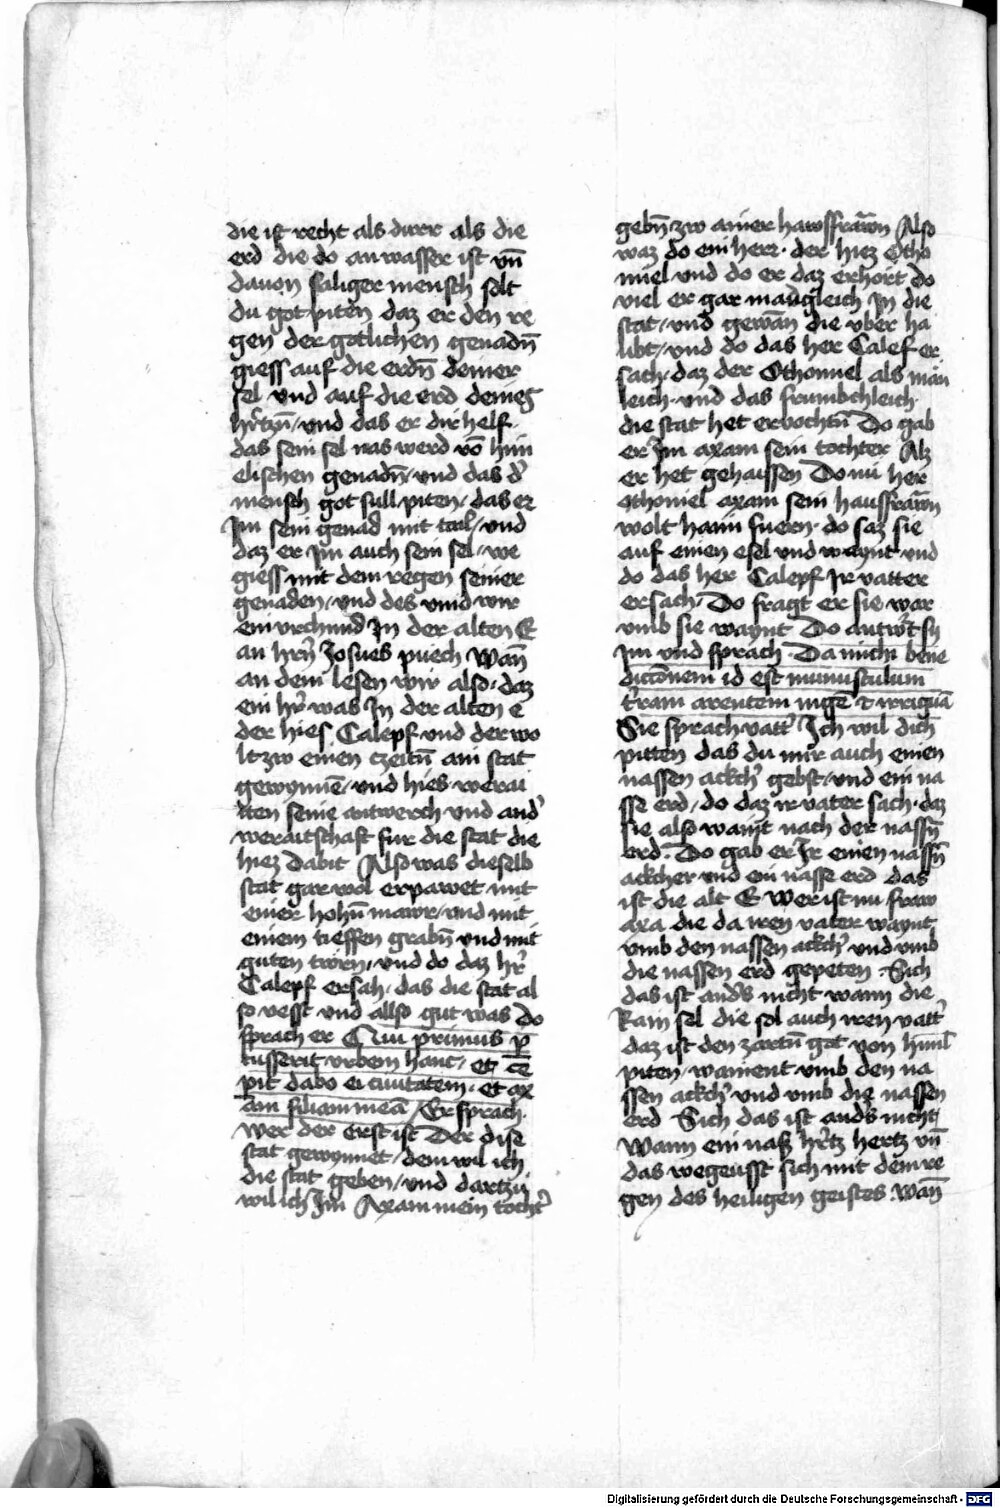 die ist recht als durr als die
erd die do an wasser ist vn̄
dauon saliger mensch solt
du got piten daz er den re
gen der gotlichen genadn̄
giess auf die erdn̄ deiner
sel vnd auf die erd deines
hr̄tzn̄ / vnd das er dir helf
das sein sel nas werd vō him
elischen genadn̄ / vnd das d'
mensch got sull piten / das er
Im sein genad mit tail / vnd
daz er im auch sein sel / we
giess mit dem regen seiner
genaden / vnd des vind wir
ein vrchund In der alten E
an hrn̄ Josues puech Wan̄
an dem lesen wir also / daz
ein hr̄ was In der alten e
der hies Calepf vnd der wo
lt zw einen czeitn̄ ain stat
gewynnē / vnd hies werai
tten seine antwerch vnd and'
weraitschaft fur die stat die
hiez Dabit Also was dieselb
stat gar wol erpawet mit
einer hohn̄ mawr / vnd mit
einem tieffen grabn̄ vnd mit
guten twrn̄ / vnd do daz hr̄
Calepf ersah / das die stat al
so vesst vnd allso gut was Do
sprach er Qui primus p
cusserit vrbem hanc / et ce
pit dabo ei ciuitatem / et ax
am filiam meā / Er sprach
wer der erst ist Der dise
stat gewynnet / dem wil ich
die stat geben / vnd dartzu
wil ich Im Axam mein tocht'
gebn̄ zw ainer hawsfrawn̄ Also
waz do ein herr · der hiez Otho
niel vnd do er daz erhort do
viel er gar manleich In die
stat / vnd gewan̄ die vber ha
libt / vnd do das her Calef er
sach / daz der Othoniel als man
leich vnd das frumbchleich
die stat het ervochtn̄ Do gab
er Im axam sein tochter Alz
er het gehaissen Do nu her
othoniel axam sein hausfrawn̄
wolt haim fuern · do saz sie
auf einen esel vnd waynt vnd
do das her Calepf Ir vatter
ersach / Do fragt er sie war
vmb sie waynt Do antwr̄t sy
im vnd sprach · Da michi bene
dictōnem id est munusculum
tr̄ram arentem iuge 't irriguā
Sie sprach vatt' Ich wil dich
pitten das du mir auch einen
nassen ackch' gebst / vnd ein na
sse erd / do daz ir vater sach · daz
sie also waint nach der nassn̄
erd · Do gab er Ir einen nassn̄
ackcher vnd ein nasse erd das
ist die alt E Wer ist nu fraw
axa die da iren vater waynt
vmb den nassen ackch' vnd vmb
die nassen erd gepeten · Sich
das ist and's nicht wann die
Rain sel die sol auch iren vatt'
daz ist den zartn̄ got von himl
piten / wainent vmb den na
ssen ackch' vnd vmb die nassen
erd Sich das ist and's nicht
Wann ein nasz hr̄tz hertz vn̄
das wegeusst sich mit dem re
gen des heiligen geistes Wan̄
Digitalisierung gefördert durch die Deutsche Forschungsgemeinschaft - DFG